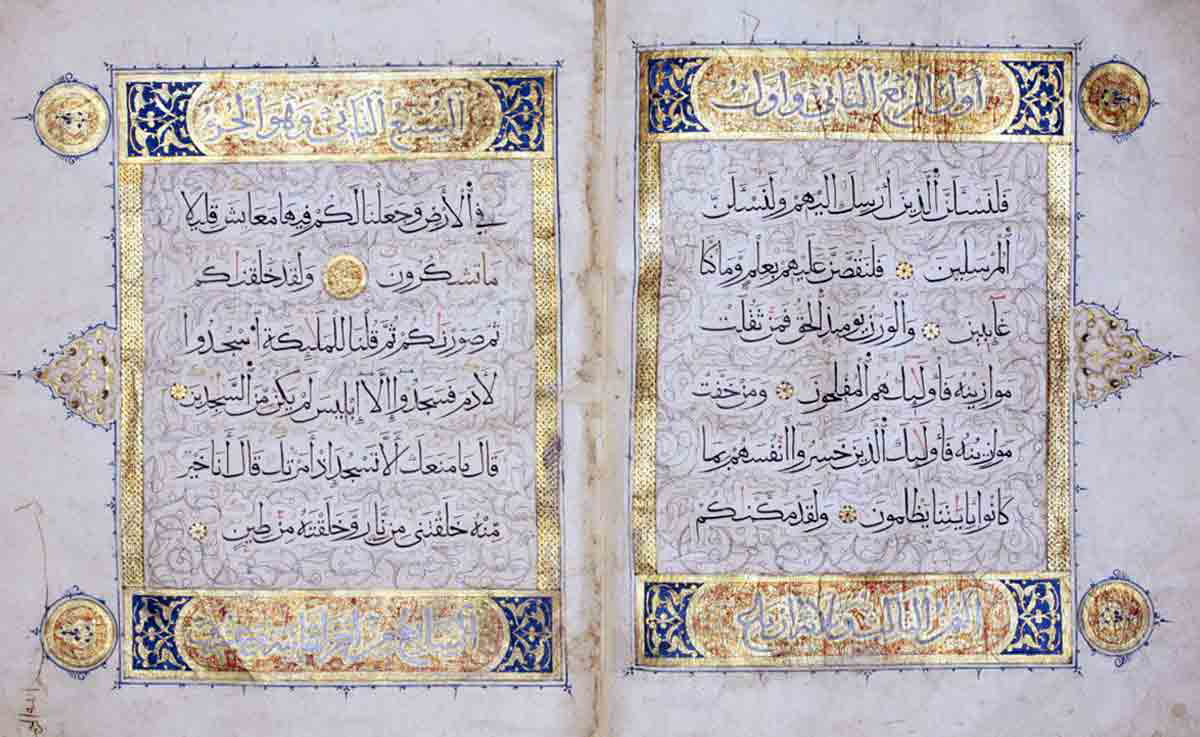 أول الربع الثاني وأول
فلنسئلن الذين أرسل إليهم ولنسئلن
المرسلين فلنقصن عليهم بعلم وما كنا
غائبين والوزن يومئذ الحق فمن ثقلت
موازينه فأولئك هم المفلحون ومن خفت
موازينه فأولئك الذين خسروا أنفسهم بما
كانوا بآيتنا يظلمون ولقد مكنكم
السبع الثاني وهو الجزء
في الأرض وجعلنا لكم فيها معايش قليلا
ما تشكرون ولقد خلقنكم
ثم صورنكم ثم قلنا للملئكة اسجدوا
لآدم فسجدوا إلا إبليس لم يكن من السجدين
قال ما منعك ألا تسجد إذ أمرتك قال أنا خير
منه خلقتني من نار وخلقته من طين